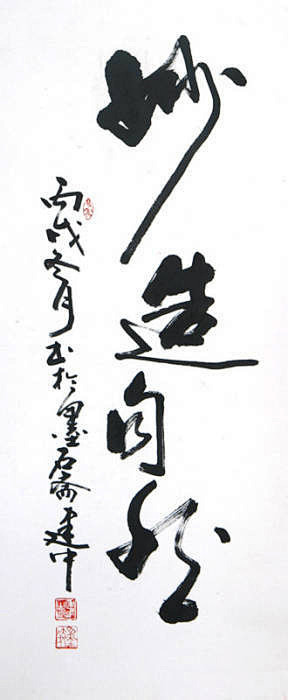 妙造自然
丙戌冬月书于墨石斋建中